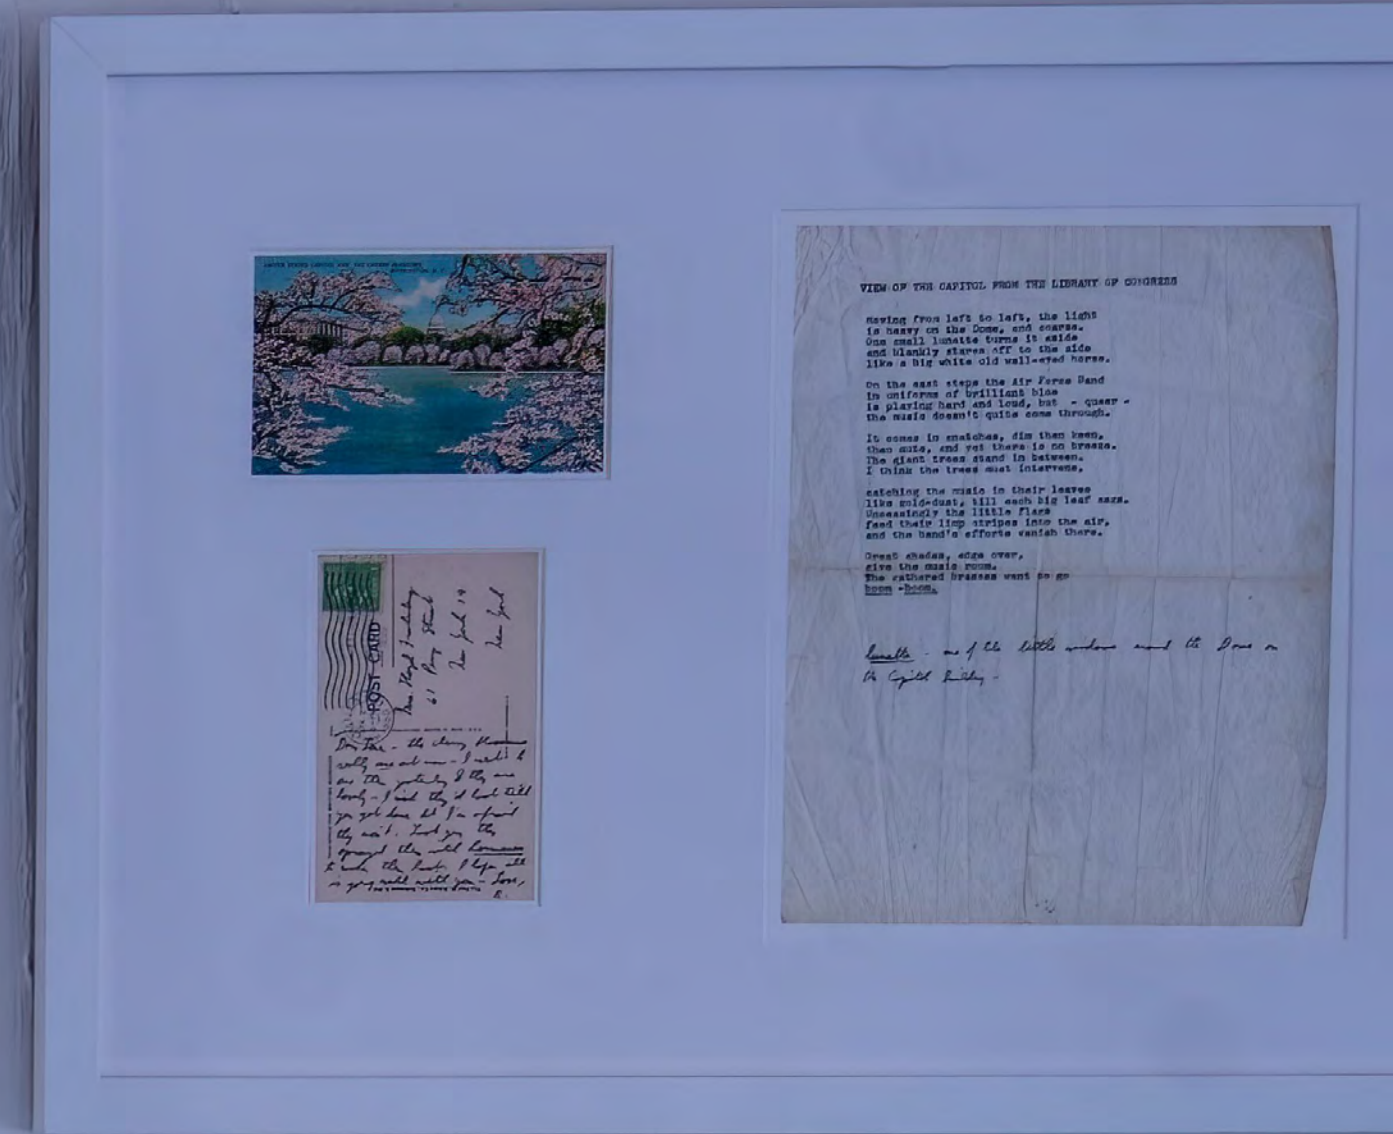 UNITED STATES CAPITOL AND THE CHERRY BLOSSOMS,
WASHINGTON, D. C.
POST CARD
Mrs. Floyd
61 Perry Street
New York 14
New York
Dear - the cherry blossoms
really are out now - I went to
see them yesterday & they are
lovely - I wish they'd last till
you get here but I'm afraid
they won't.
sprayed them with hormones
to make them last. I hope all
is going well with you - Love,
E.
VIEW OF THE CAPITOL FROM THE LIBRARY OF CONGRESS
Moving from left to left, the light
is heavy on the Dome, and coarse.
One small lunette turns it aside
and blankly stares off to the side
like a big white old wall-eyed horse.
On the east steps the Air Force Band
in uniforms of brilliant blue
is playing hard and loud, but - queer -
the music doesn't quite come through.
It comes in snatches, dim then keen,
then mute, and yet there is no breeze.
The giant trees stand in between.
I think the trees must intervene,
catching the music in their leaves
like gold-dust, till each big leaf sags.
Unceasingly the little flags
feed their limp stripes into the air,
and the band's efforts vanish there.
Great shades, edge over,
give the music room.
The gathered brasses want to go
boom - boom.
lunette - one of the little windows around the Dome on
the Capitol Building -